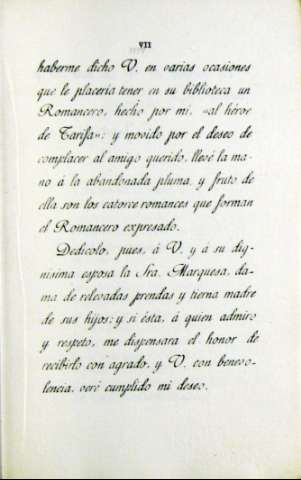 VII
haberme dicho V. en varias ocasiones
que le placería tener en su biblioteca un
Romancero, hecho por mi, «al héroe
de Tarifa»; y movido por el deseo de
complacer al amigo querido, llevé la ma-
no á la abandonada pluma y fruto de
ella son los catorce romances que forman
el Romancero expresado.
Dedícolo, pues, á V. y á su dig-
nísima esposa la Sra. Marquesa, da-
ma de relevadas prendas y tierna madre
de sus hijos; y si ésta, á quien admiro
y respeto, me dispensara el honor de
recibirlo con agrado, y V. con benevo-
lencia, veré cumplido mi deseo.